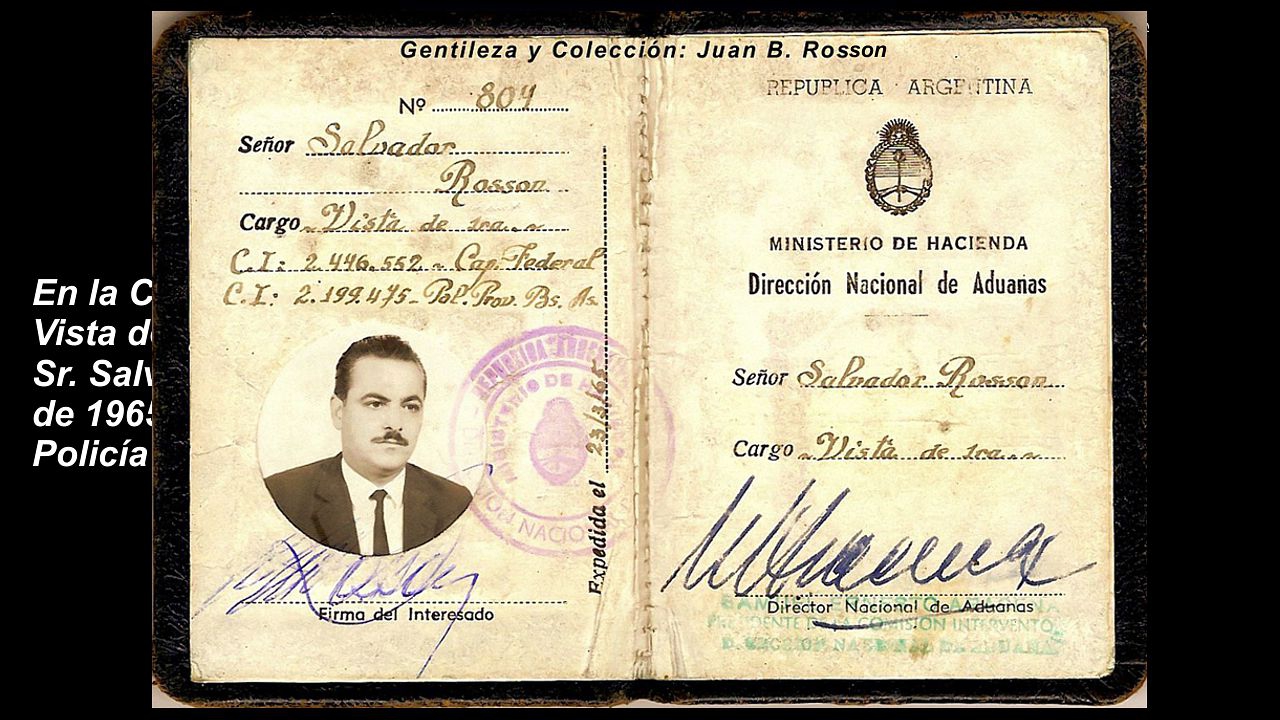 Gentileza y Colección: Juan B. Rosson
En la C
Vista d
Sr. Salv
de 1965
Policía
Nº 804
Señor Salvador
Rosson
Cargo Vista de 1ra.
C.I: 2.446.552 - Cap. Federal
C.I: 2.199.475 - Pol. Prov. Bs. As.
Expedida el 23/3/65
Firma del Interesado
REPUBLICA ARGENTINA
MINISTERIO DE HACIENDA
Dirección Nacional de Aduanas
Señor Salvador Rosson
Cargo Vista de 1ra.
Director Nacional de Aduanas
PRESIDENTE DE LA COMISION INTERVENTO